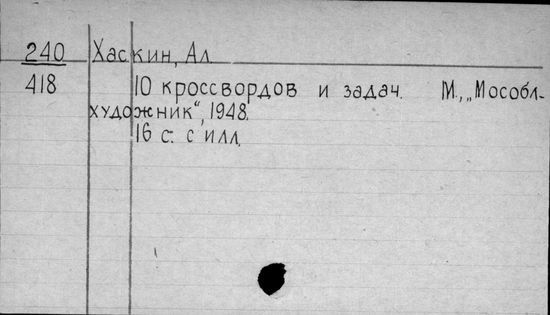 240 Хаскин, Ал.
418 10 кроссвордов и задач. М., „Мособл-
художник“, 1948.
16 с. с илл.